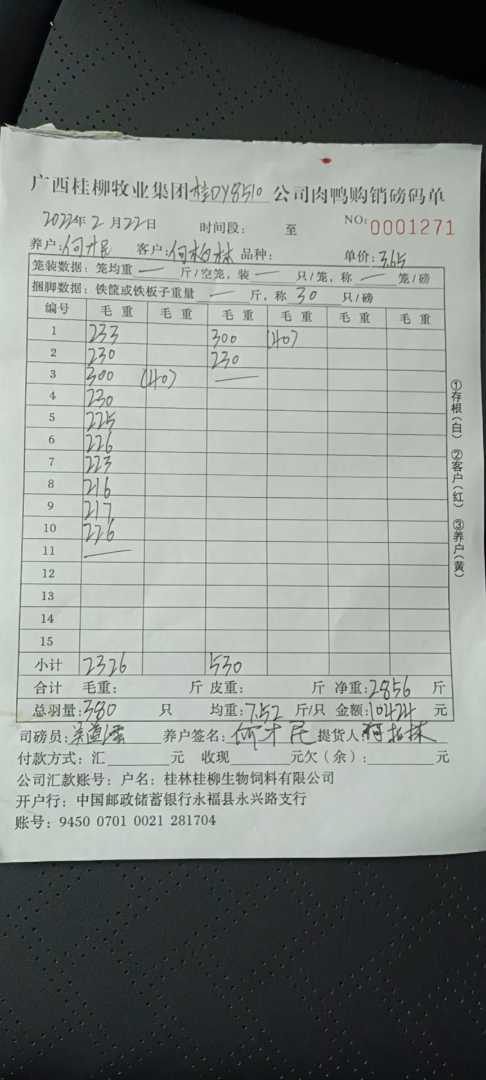 广西桂柳牧业集团桂DY8510公司肉鸭购销磅码单
2022年2月22日 时间段: 至 NO:0001271
养户:何升民 客户:何柏林 品种: 单价:3.65
笼装数据: 笼均重 — 斤/空笼,装 — 只/笼,称 — 笼/磅
捆脚数据: 铁筐或铁板子重量 — 斤,称 30 只/磅
编号 毛重 毛重 毛重 毛重 毛重 毛重
1 233 300 (40)
2 230 230
3 300 (40) —
4 230
5 225
6 226
7 223
8 216
9 217
10 226
11 —
12
13
14
15
小计 2326 530
合计 毛重: 斤 皮重: 斤 净重:2856 斤
总羽量:380 只 均重:7.52 斤/只 金额:10424 元
司磅员: 养户签名:何升民 提货人 何柏林
付款方式:汇 元 收现 元欠(余): 元
公司汇款账号:户名:桂林桂柳生物饲料有限公司
开户行:中国邮政储蓄银行永福县永兴路支行
账号:9450 0701 0021 281704
①存根(白) ②客户(红) ③养户(黄)